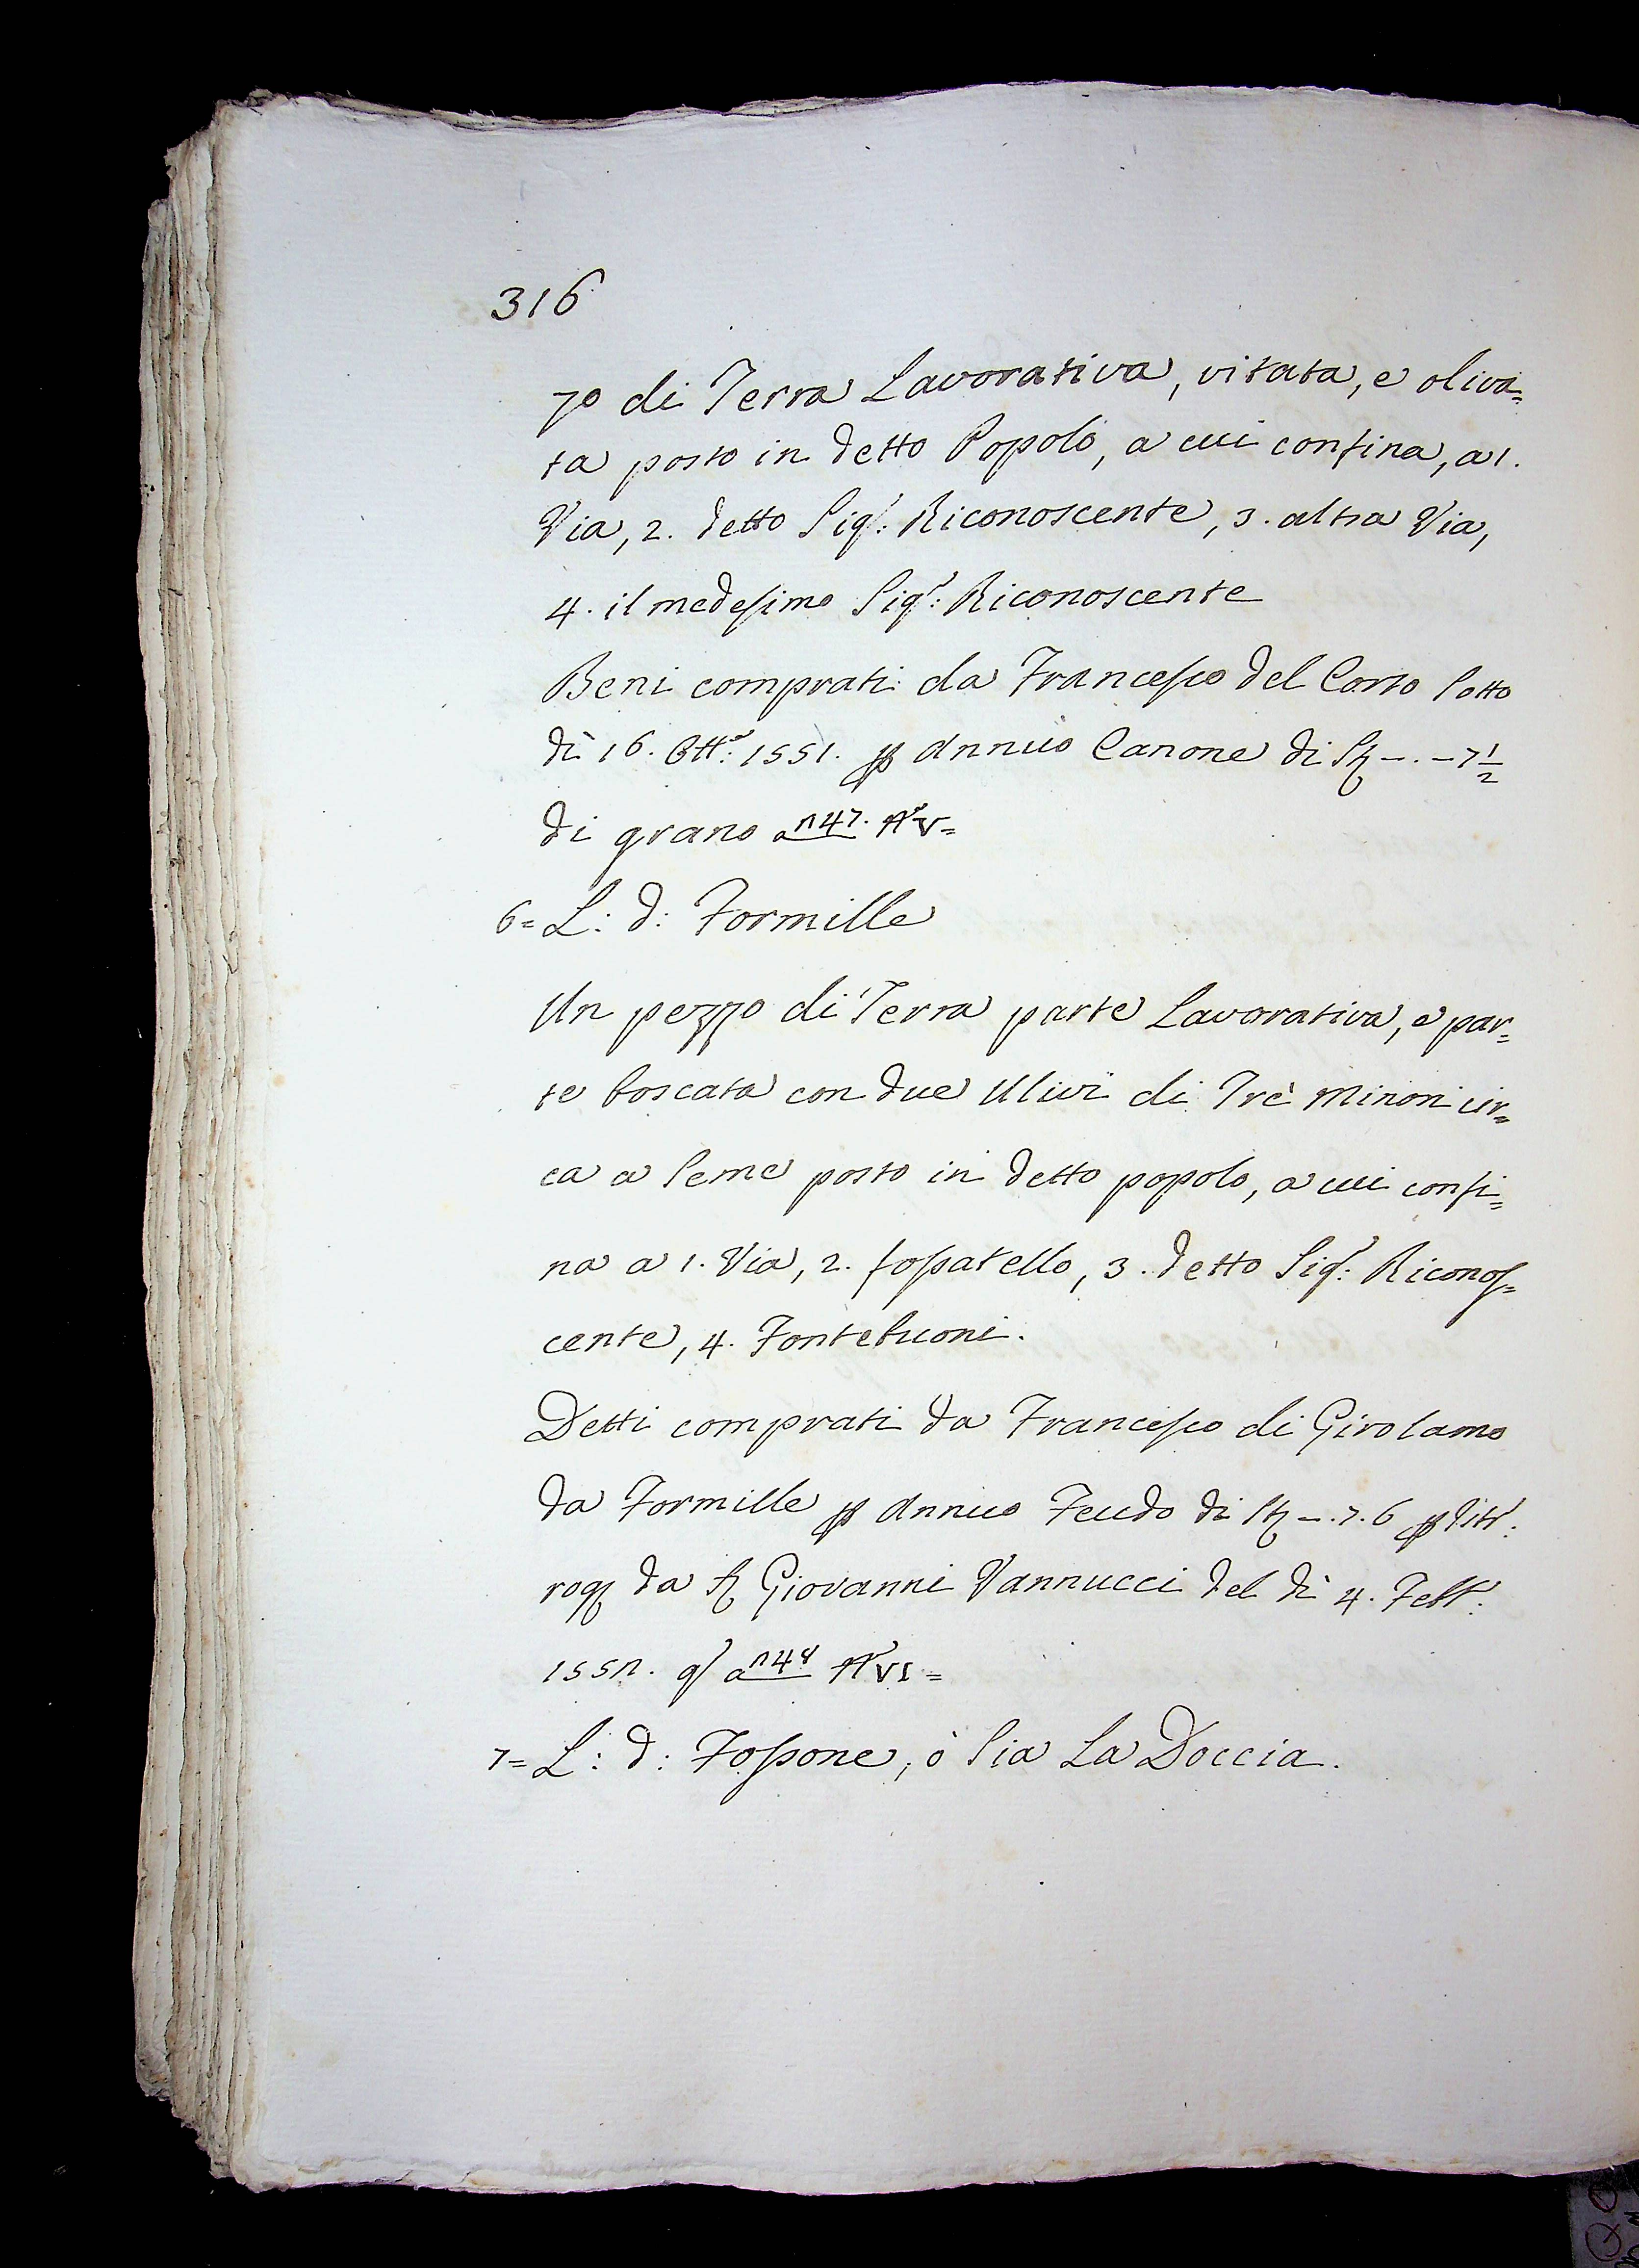 316
zo di Terra Lavorativa, vitata, e oliva=
ta posto in detto Popolo, a cui confina, a 1.
Via, 2. detto Sig.r: Riconoscente, 3. altra Via,
4. il medesimo Sig.r: Riconoscente
Beni comprati da Francesco del Corso Sotto
dì 16. Ott.e: 1551. p Annuo Canone di St -.-7½
di grano a n 47. V=
6= L: d: Formille
Un pezzo di Terra parte Lavorativa, e par=
te boscata con due Ulivi di Trè Minori cir=
ca a Seme posto in detto popolo, a cui confi=
na a 1. Via, 2. fossatello, 3. detto Sig.r: Riconos=
cente, 4. Fontebuoni.
Detti comprati da Francesco di Girolamo
da Formille p Annuo Feudo di St -.7.6 p
rog da Giovanni Vannucci del dì 4. Febb.r:
a n 48 VI=
7= L: d: Fossone, ò Sia La Doccia.